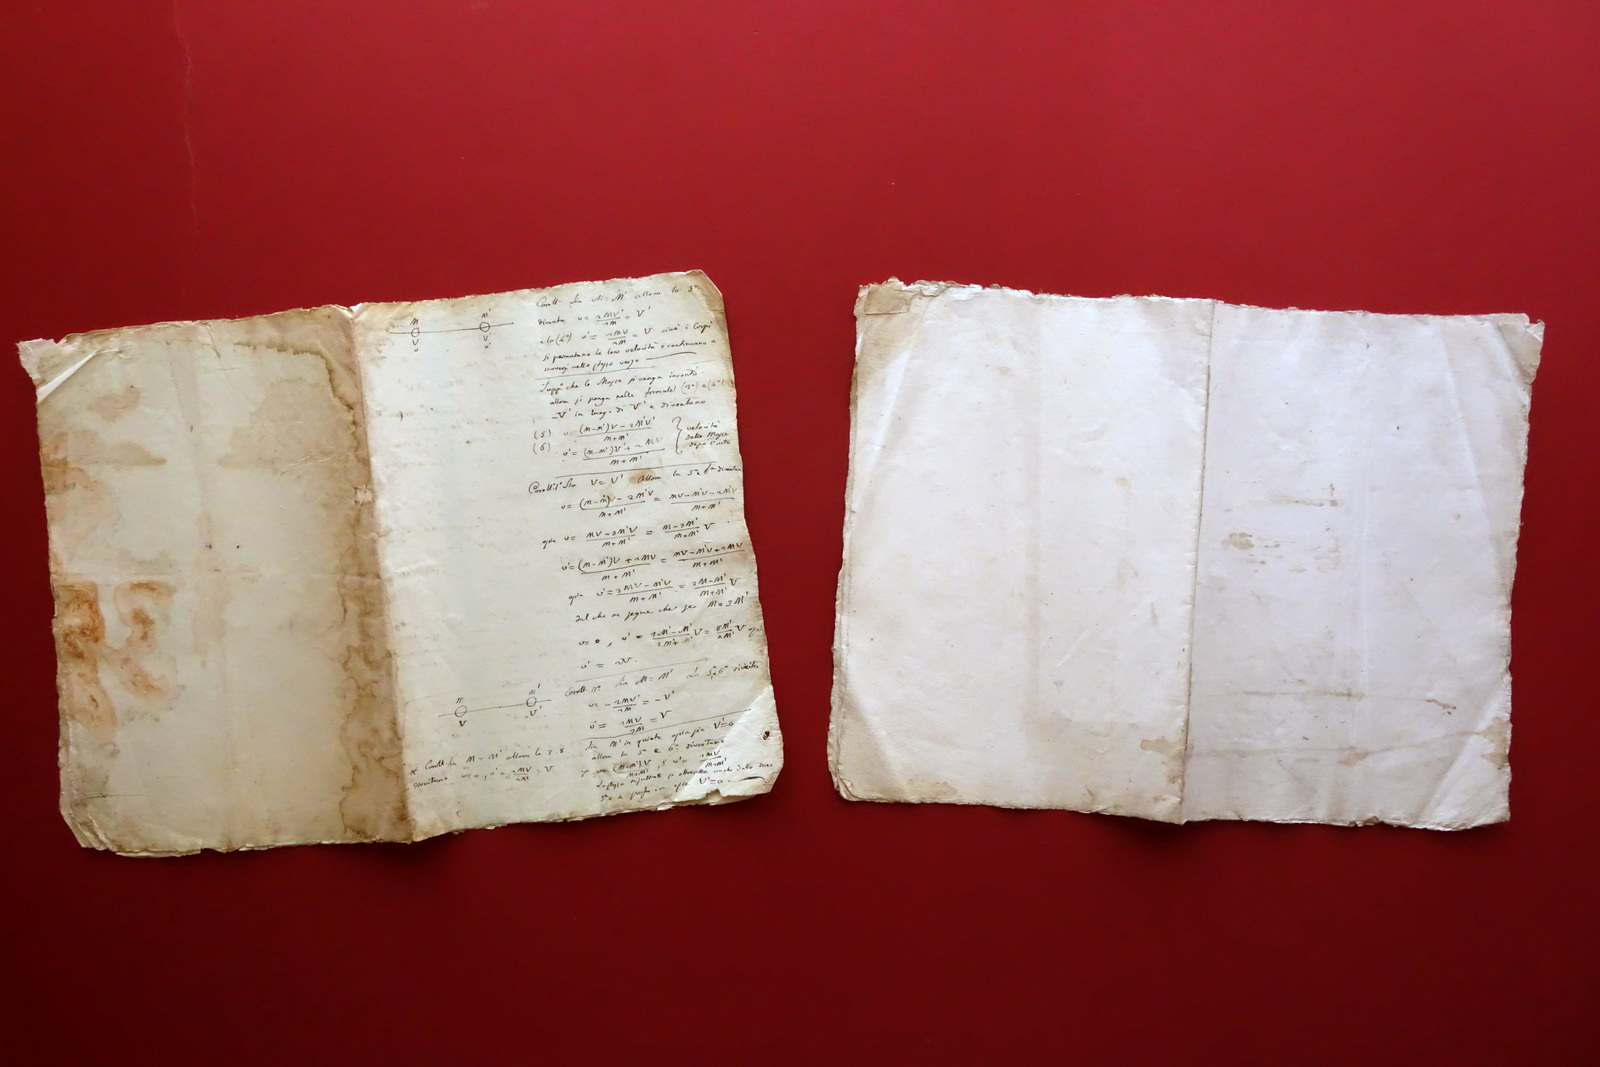 M M'
V V'
v v'
Coroll. Sia M=M' allora la 3ª
diventa v = 2MV'/2M = V'
e la (4ª) v' = 2MV/2M = V cioè i Corpi
si permutano le loro velocità e continuano a
moversi nello stesso verso
Supp. che le Masse si vengano incontro
allora si ponga nelle formule (3ª) e (4ª)
-V' in luogo di V' e diventano
(5) v = (M-M')V - 2M'V'/M+M'
(6) v' = (M-M')V' + 2MV/M+M'
velocità
delle Masse
dopo l'urto
Coroll. 1º Sia V=V' Allora la 5ª 6ª diventa
v = (M-M')V - 2M'V/M+M' = MV-M'V-2M'V/M+M'
v = MV-3M'V/M+M' = M-3M'/M+M' V
v' = (M-M')V + 2MV/M+M' = MV-M'V+2MV/M+M'
v' = 3MV-M'V/M+M' = 3M-M'/M+M' V
dal che ne segue che se M=3M'
v=0, v' = V = 8M'/4M' V
v' = 2V.
M M'
V -V'
Coroll. IIº Sia M=M' la 5ª 6ª diventa
v = -2MV'/2M = -V'
v' = 2MV/2M = V
Sia M' in quiete ossia sia V'=0
allora la 5ª e 6ª diventano
7 v = (M-M')V/M+M', 8 v' = 2MV/M+M'
x Coroll. Sia M=M' allora la 7-8
diventano v=0, v' = 2MV/2M = V